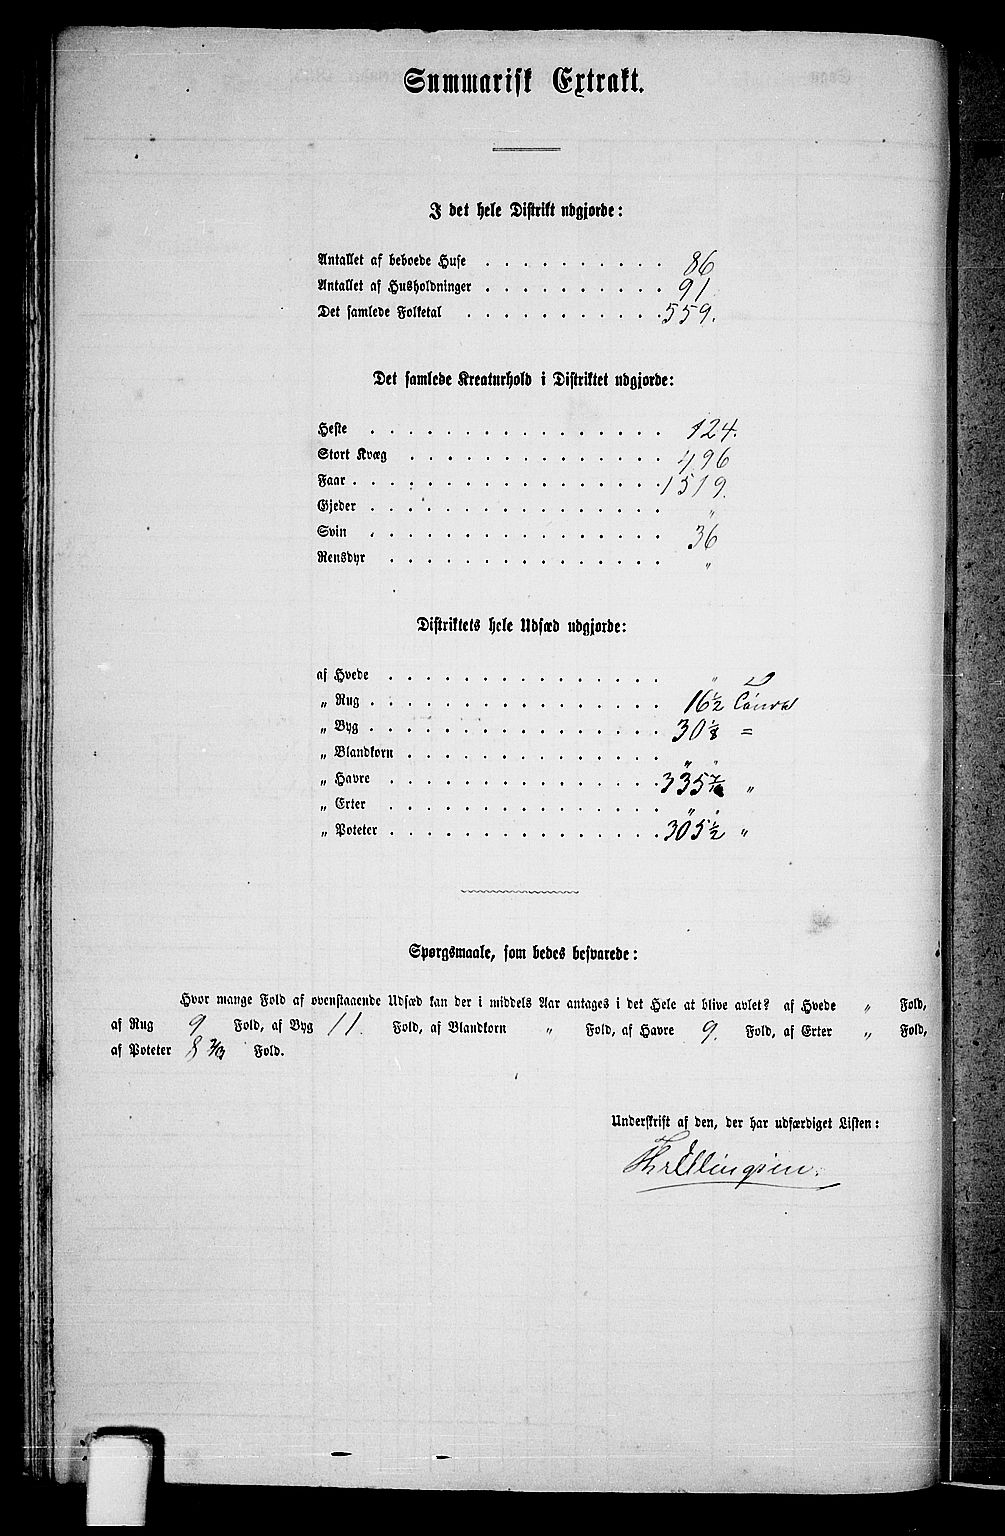 Summarisk Extrakt.
I det hele Distrikt udgjorde:
Antallet af beboede Huse . . . . . . . . . . 86
Antallet af Husholdninger . . . . . . . . . . 91
Det samlede Folketal . . . . . . . . . . . 559.
Det samlede Kreaturhold i Distriktet udgjorde:
Heste . . . . . . . . . . . . . . . . 124.
Stort Kvæg . . . . . . . . . . . . . . 496
Faar . . . . . . . . . . . . . . . . . 1519.
Gjeder . . . . . . . . . . . . . . . . "
Svin . . . . . . . . . . . . . . . . 36
Rensdyr . . . . . . . . . . . . . . . "
Distriktets hele Udsæd udgjorde:
af Hvede . . . . . . . . . . . . . . . "
„ Rug . . . . . . . . . . . . . . . . 16 1/2 Tønder
„ Byg . . . . . . . . . . . . . . . . 30 1/8 =
„ Blandkorn . . . . . . . . . . . . . . " "
„ Havre . . . . . . . . . . . . . . . 335 "
„ Erter . . . . . . . . . . . . . . . " "
„ Poteter . . . . . . . . . . . . . . . 305 1/2 "
Spørgsmaale, som bedes besvarede:
Hvor mange Fold af ovenstaaende Udsæd kan der i middels Aar antages i det Hele at blive avlet? af Hvede " Fold,
af Rug 9 Fold, af Byg 11. Fold, af Blandkorn " Fold, af Havre 9. Fold, af Erter " Fold,
af Poteter 8 2/3 Fold.
Underskrift af den, der har udfærdiget Listen:
Ellingsen.